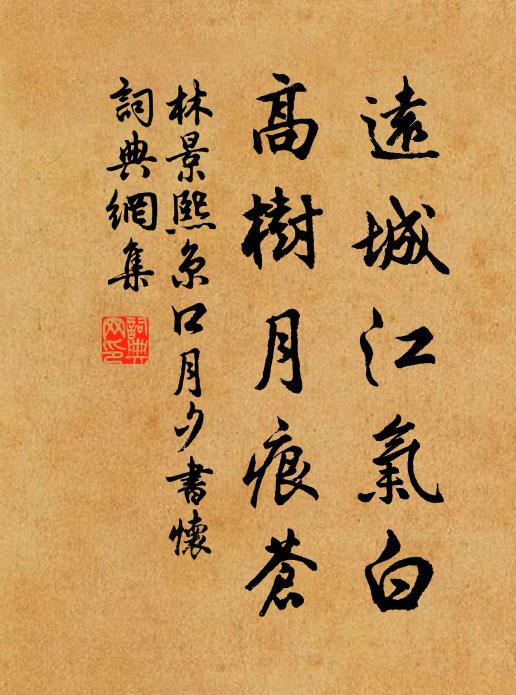 遠城江氣白
高樹月痕蒼
林景熙京口月夕書懷
詞典網集
詞典
网印